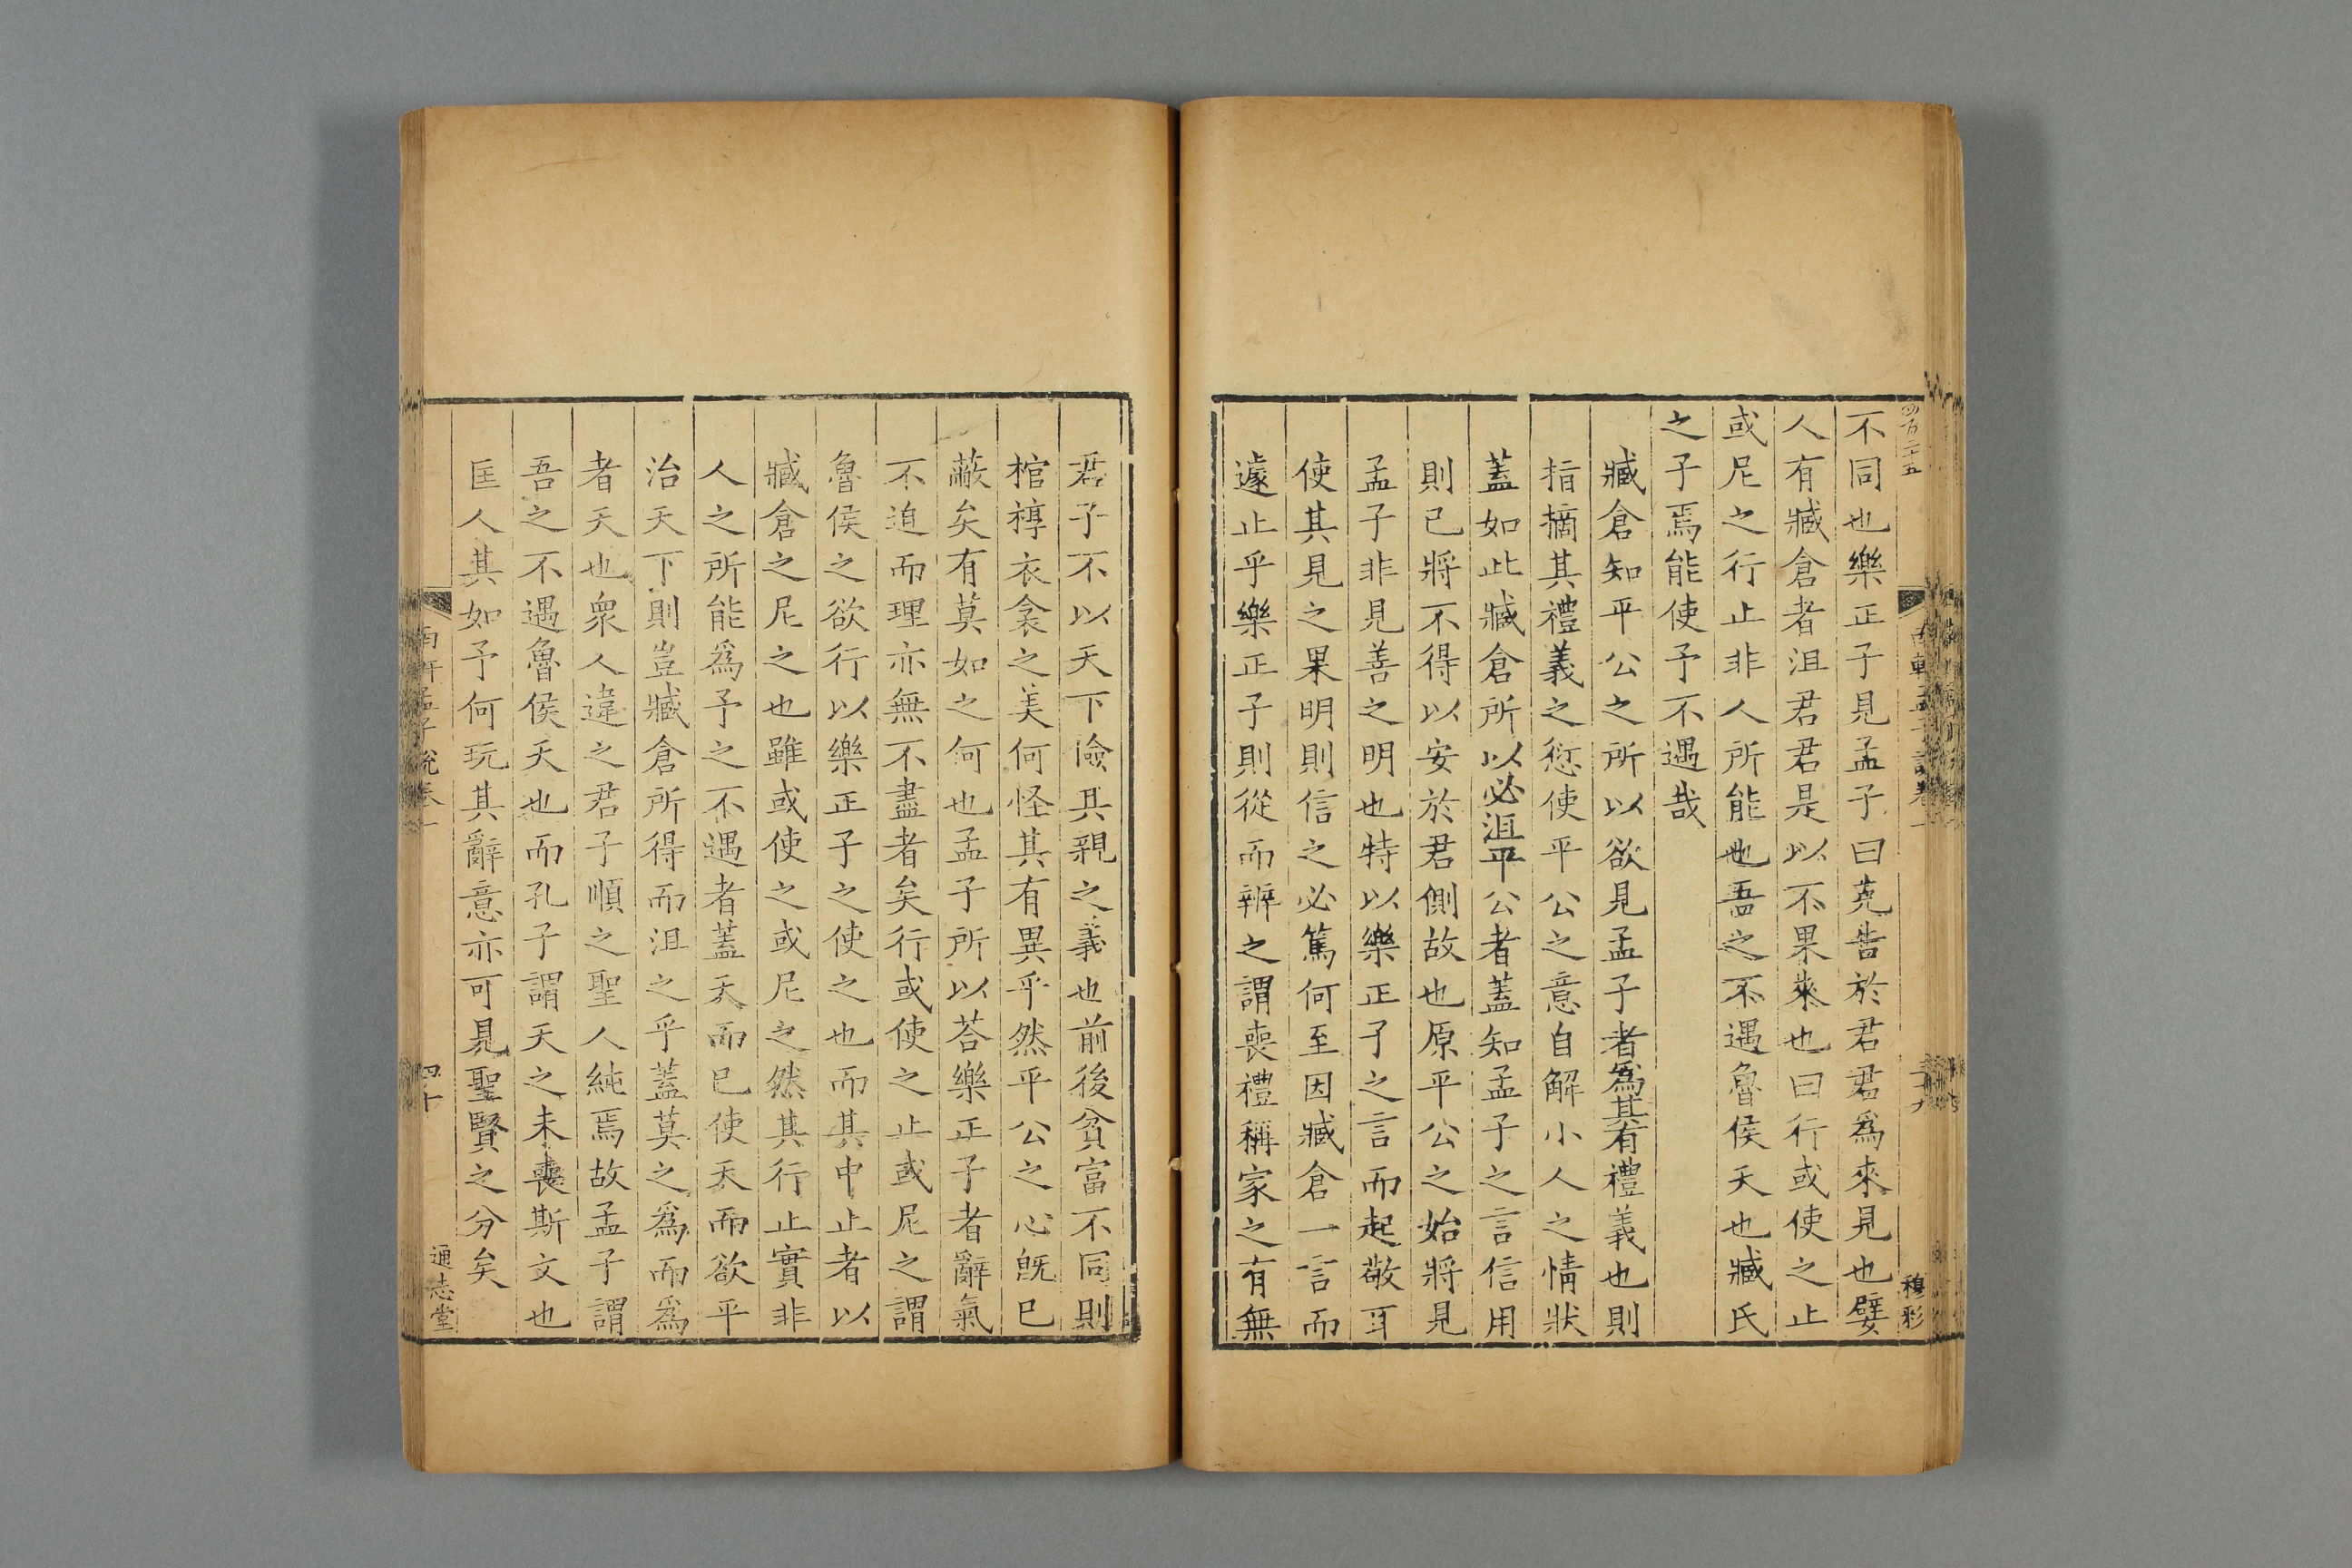 四百二十五
不同也樂正子見孟子曰克告於君君爲來見也嬖
人有臧倉者沮君君是以不果來也曰行或使之止
或尼之行止非人所能也吾之不遇魯侯天也臧氏
之子焉能使予不遇哉
臧倉知平公之所以欲見孟子者爲其有禮義也則
指摘其禮義之愆使平公之意自解小人之情狀
蓋如此臧倉所以必沮平公者蓋知孟子之言信用
則已將不得以安於君側故也原平公之始將見
孟子非見善之明也特以樂正子之言而起敬耳
使其見之果明則信之必篤何至因臧倉一言而
遽止乎樂正子則從而辨之謂喪禮稱家之有無
穆彩
君子不以天下儉其親之義也前後貧富不同則
棺椁衣衾之美何怪其有異乎然平公之心旣已
蔽矣有莫如之何也孟子所以荅樂正子者辭氣
不迫而理亦無不盡者矣行或使之止或尼之謂
魯侯之欲行以樂正子之使之也而其中止者以
臧倉之尼之也雖或使之或尼之然其行止實非
人之所能爲予之不遇者蓋天而已使天而欲平
治天下則豈臧倉所得而沮之乎蓋莫之爲而爲
者天也衆人違之君子順之聖人純焉故孟子謂
吾之不遇魯侯天也而孔子謂天之未喪斯文也
匡人其如予何玩其辭意亦可見聖賢之分矣
南軒孟子說卷一
四十
通志堂